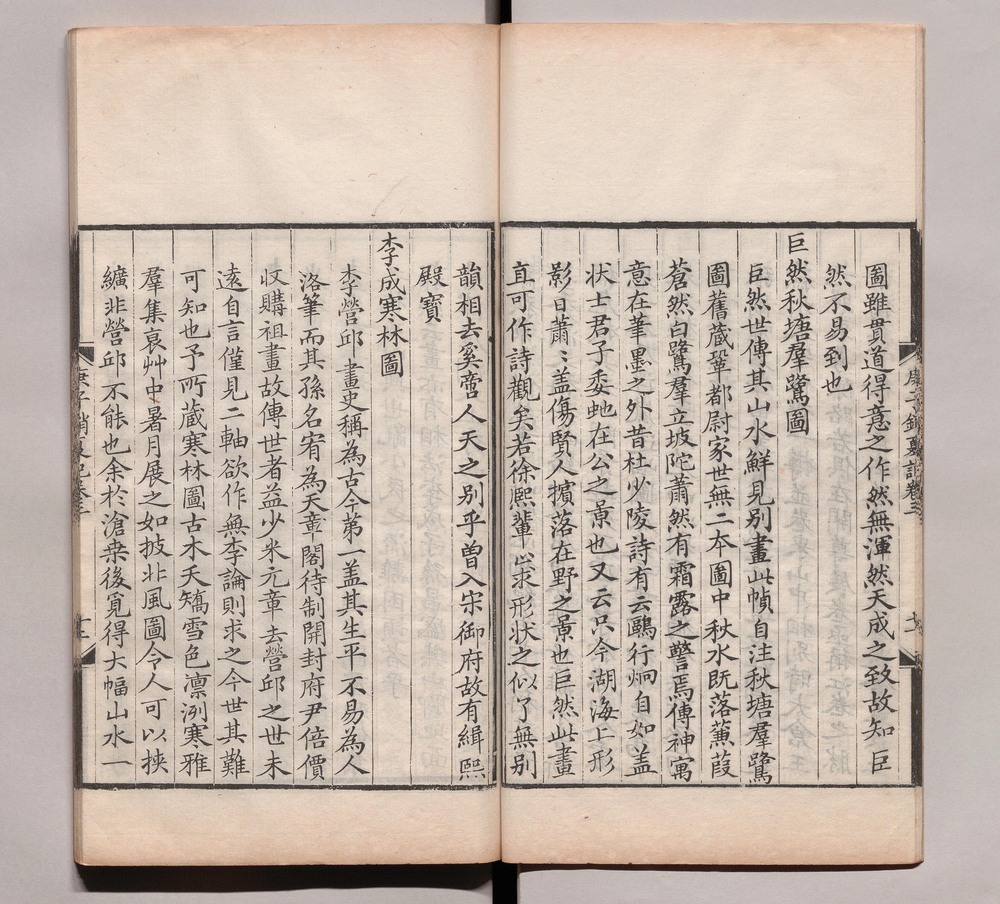 圖雖貫道得意之作然無渾然天成之致故知巨
然不易到也
巨然秋塘羣鷺圖
巨然世傳其山水鮮見別畫此幀自注秋塘羣鷺
圖舊蔵鞏都尉家世無二夲圖中秋水既落蒹葭
蒼然白鷺羣立坡陀蕭然有霜露之警焉傳神寓
意在筆墨之外昔杜少陵詩有云鷗行炯自如盖
状士君子委虵在公之景也又云只今湖海上形
影日蕭〻盖傷賢人擯落在野之景也巨然此畫
直可作詩觀矣若徐熙輩𠆢求形状之似了無別
韻相去奚啻人天之別乎曾入宋御府故有緝熙
殿寶
李成寒林圖
李營邱畫史稱為古今第一盖其生平不易為人
洛筆而其孫名宥為天章閣待制開封府尹倍價
収購祖畫故傳世者益少米元章去營邱之世未
遠自言僅見二軸欲作無李論則求之今世其難
可知也予所蔵寒林圖古木夭矯雪色凛洌寒雅
羣集哀艸中暑月展之如披北風圖令人可以挟
纊非營邱不能也余於滄桒後覓得大幅山水一
庚子銷夏記卷三
十二
庚子銷夏記卷三
十三